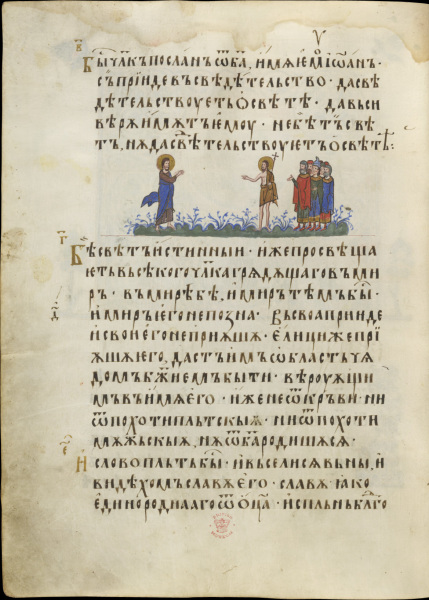 в҃
Бы чл҃къ посланъ ѿ ба҃, имѧ ємоу іѡанъ ·
съ прїиде въ свѣдѣтельство · да свѣ
дѣтельствоуетъ ѡ свѣтѣ · да вьси
вѣрѫ имѫтъ ємоу · не бѣ тъ свѣ
тъ, нѫ да свѣтельствоуетъ ѡ свѣтѣ :
г҃
Бѣ свѣтъ истинныи · иже просвѣща
етъ вьсѣкого чл҃ка грѧдѫщаго въ ми
ръ · въ мирѣ бѣ, и миръ тѣмъ бы ·
д҃
и миръ его не позна · Въ своа прїиде
и свои его не приѧшѧ · Елици же прї
ѧшѧ его, дастъ имъ ѡбласть чѧ
домъ бж҃їемъ быти · вѣроуѫщи
мъ въ имѧ его · иже не ѿ крьви · ни
ѿ похоти плътскыѧ · ни ѿ похоти
мѫжьскыѧ, нѫ ѿ ба҃ родишѧсѧ ·
е҃
И слово плъть бы · и въселисѧ въ ны, и
видѣхомъ славѫ его · славѫ ꙗко
единороднааго ѿ оц҃а · исплънь бл҃го